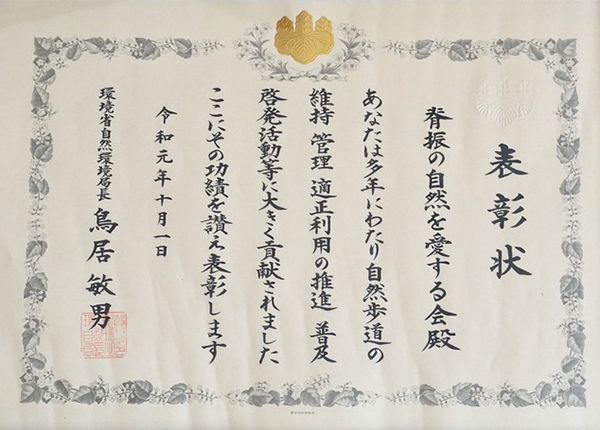 表彰状
脊振の自然を愛する会殿
あなたは多年にわたり自然歩道の
維持 管理 適正利用の推進 普及
啓発活動等に大きく貢献されました
ここにその功績を讃え表彰します
令和元年十月一日
環境省自然環境局長 鳥居敏男